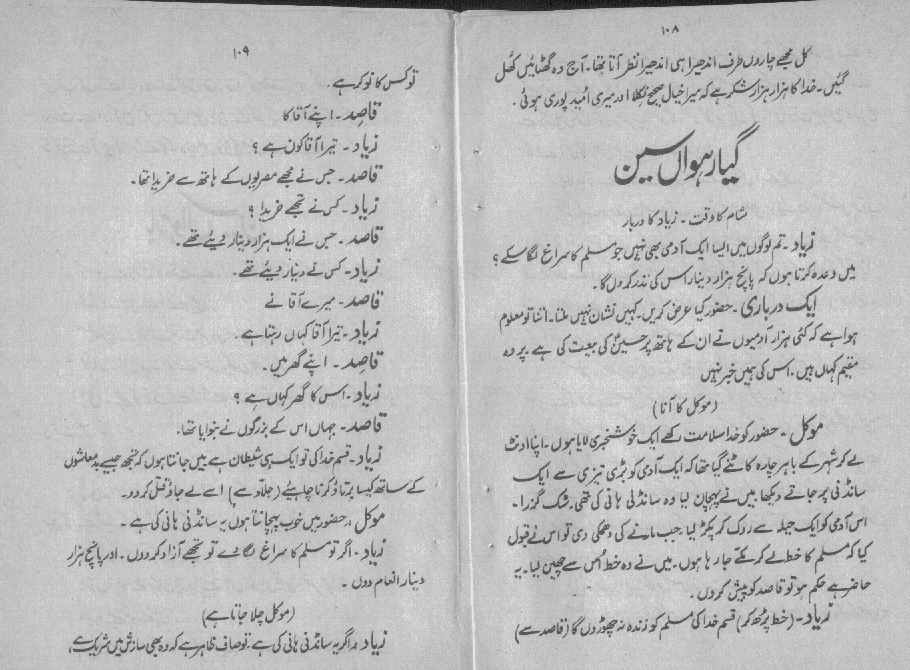 ۱۰۸
کل مجھے چاروں طرف اندھیرا ہی اندھیرا نظر آتا تھا۔ آج وہ گھٹائیں کھل
گئیں۔ خدا کا ہزار ہزار شکر ہے کہ میرا خیال صحیح نکلا اور میری اُمید پوری ہوئی۔
گیارہواں سین
شام کا وقت۔ زیاد کا دربار
زیاد۔ تم لوگوں میں ایسا ایک آدمی بھی نہیں جو مسلم کا سراغ لگا سکے؟
میں وعدہ کرتا ہوں کہ پانچ ہزار دینار اس کی نذر کروں گا۔
ایک درباری۔ حضور کیا عرض کریں۔ کہیں نشان نہیں ملتا۔ اتنا تو معلوم
ہوا ہے کہ کئی ہزار آدمیوں نے ان کے ہاتھ پر حسینؑ کی بیعت کی ہے پر وہ
مقیم کہاں ہیں۔ اس کی ہمیں خبر نہیں
(موکل کا آنا)
موکل۔ حضور کو خدا سلامت رکھے ایک خوشخبری لایا ہوں۔ اپنا اونٹ
لے کر شہر کے باہر چارہ کاٹنے گیا تھا کہ ایک آدمی کو بڑی تیزی سے ایک
سانڈنی پر جاتے دیکھا میں نے پہچان لیا وہ سانڈنی ہانی کی تھی۔ شک گزرا۔
اس آدمی کو ایک حیلہ سے روک کر پکڑ لیا۔ جب مارنے کی دھمکی دی تو اس نے قبول
کیا کہ مسلم کا خط لے کر مکے جا رہا ہوں۔ میں نے وہ خط اُس سے چھین لیا۔ یہ
حاضر ہے حکم ہو تو قاصد کو پیش کروں۔
زیاد۔ (خط پڑھ کر) قسم خدا کی مسلم کو زندہ نہ چھوڑوں گا (قاصد سے)
۱۰۹
تو کس کا نوکر ہے۔
قاصد۔ اپنے آقا کا
زیاد۔ تیرا آقا کون ہے؟
قاصد۔ جس نے مجھے مصریوں کے ہاتھ سے خریدا تھا۔
زیاد۔ کس نے تجھے خریدا؟
قاصد۔ جس نے ایک ہزار دینار دیئے تھے۔
زیاد۔ کس نے دینار دیئے تھے۔
قاصد۔ میرے آقا نے
زیاد۔ تیرا آقا کہاں رہتا ہے۔
قاصد۔ اپنے گھر میں۔
زیاد۔ اس کا گھر کہاں ہے؟
قاصد۔ جہاں اس کے بزرگوں نے بنوایا تھا۔
زیاد۔ قسم خدا کی تو ایک ہی شیطان ہے میں جانتا ہوں کہ تجھ جیسے بدمعاشوں
کے ساتھ کیسا برتاؤ کرنا چاہیئے (جلّاد سے) اسے لے جاؤ قتل کر دو۔
موکل۔ حضور میں خوب پہچانتا ہوں یہ سانڈنی ہانی کی ہے۔
زیاد۔ اگر تو مسلم کا سراغ لگا دے تو تجھے آزاد کر دوں۔ اور پانچ ہزار
دینار انعام دوں۔
(موکل چلا جاتا ہے)
زیاد۔ اگر یہ سانڈنی ہانی کی ہے۔ تو صاف ظاہر ہے کہ وہ بھی سازش میں شریک ہے،